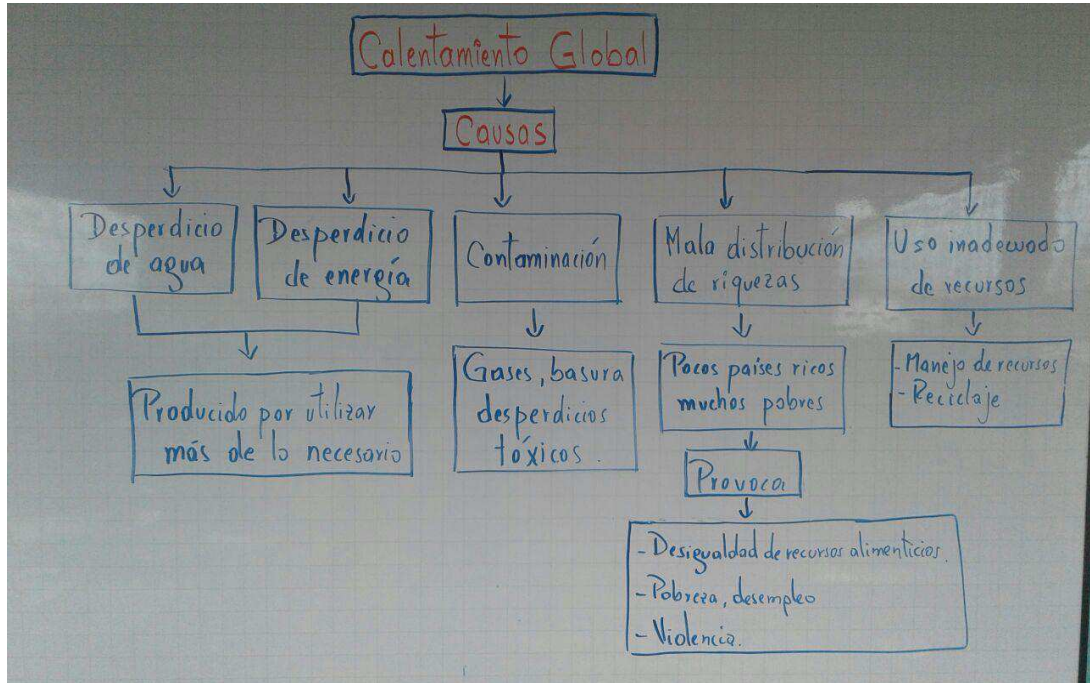 Calentamiento Global
Causas
Desperdicio
de agua
Desperdicio
de energía
Contaminación
Mala distribución
de riquezas
Uso inadecuado
de recursos
Producido por utilizar
más de lo necesario
Gases, basura
desperdicios
tóxicos.
Pocos países ricos
muchos pobres
- Manejo de recursos
- Reciclaje
Provoca
- Desigualdad de recursos alimenticios.
- Pobreza, desempleo
- Violencia.